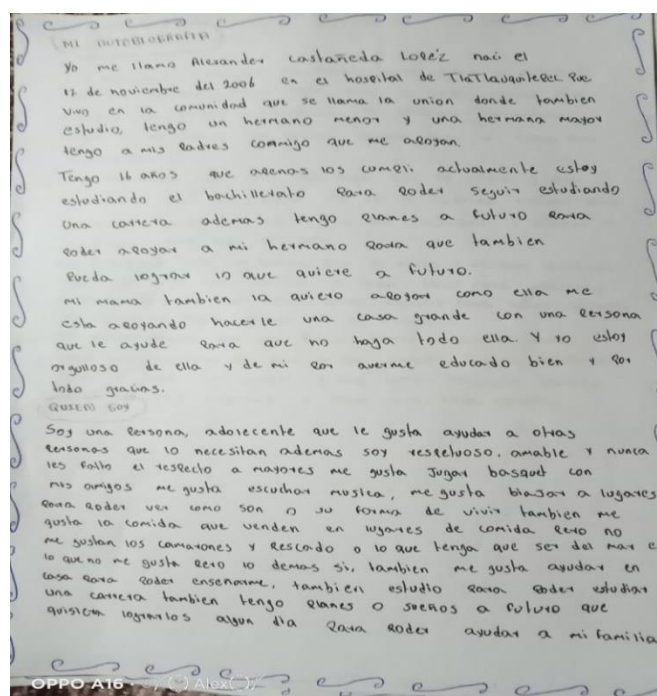 MI AUTOBIOGRAFIA
Yo me llamo Alexander Castañeda Lopéz naci el
12 de noviembre del 2006 en el hospital de Tlatlauquitepec Pue
Vivo en la comunidad que se llama la union donde tambien
estudio, tengo un hermano menor y una hermana mayor
tengo a mis padres conmigo que me apoyan.
Tengo 16 años que apenas los cumpli actualmente estoy
estudiando el bachillerato para poder seguir estudiando
una carrera ademas tengo planes a futuro para
poder apoyar a mi hermano para que tambien
Pueda lograr lo que quiere a futuro.
mi mama tambien la quiero apoyar como ella me
esta apoyando hacerle una casa grande con una persona
que le ayude para que no haga todo ella. Y yo estoy
orgulloso de ella y de mi por averme educado bien y por
todo gracias.
QUIEN SOY
Soy una persona, adolecente que le gusta ayudar a otras
personas que lo necesitan ademas soy respetuoso, amable y nunca
les falto el respecto a mayores me gusta Jugar basquet con
mis amigos me gusta escuchar musica, me gusta biajar a lugares
para poder ver como son o su forma de vivir tambien me
gusta la comida que venden en lugares de comida pero no
me gustan los camarones y pescado o lo que tenga que ser del mar e
lo que no me gusta pero lo demas si, tambien me gusta ayudar en
casa para poder enseñarme, tambien estudio para poder estudiar
una carrera tambien tengo planes o sueños a futuro que
quisiera lograrlos algun dia para poder ayudar a mi familia
OPPO A16 Alex